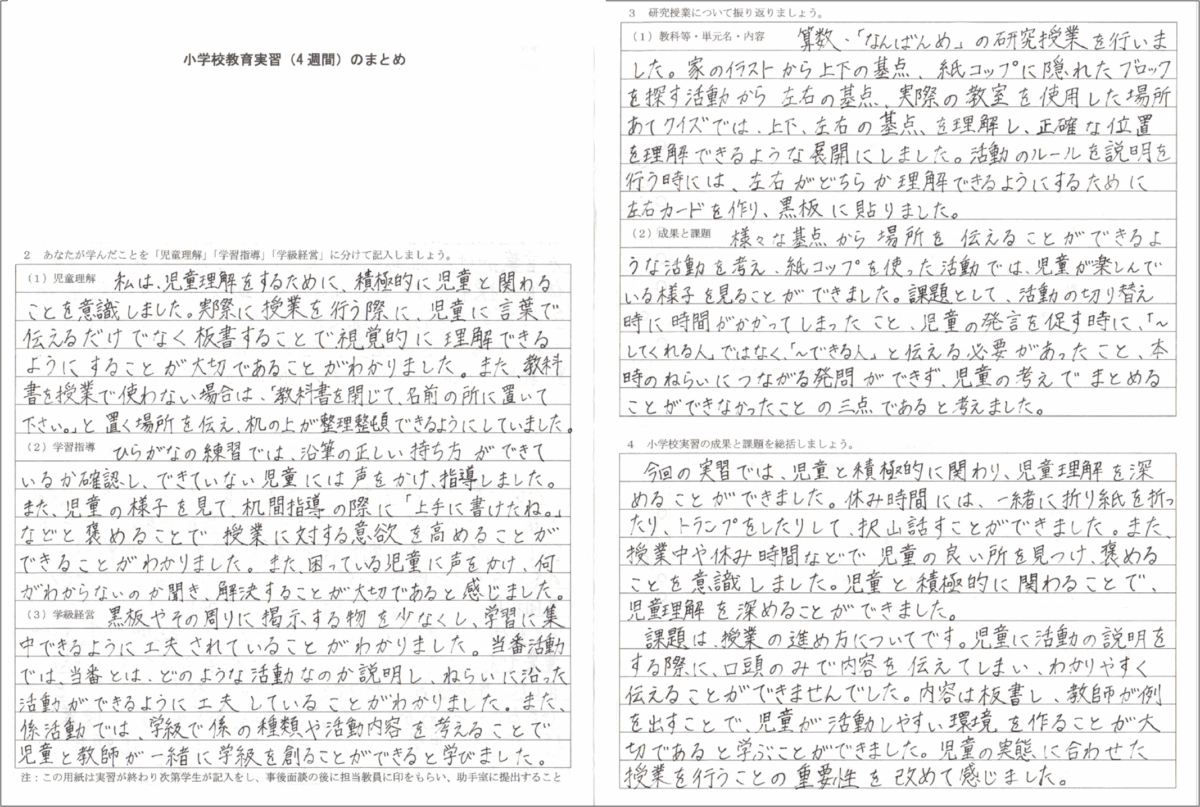 小学校教育実習（4週間）のまとめ
2　あなたが学んだことを「児童理解」「学習指導」「学級経営」に分けて記入しましょう。
（1）児童理解　私は、児童理解をするために、積極的に児童と関わる
ことを意識しました。実際に授業を行う際に、児童に言葉で
伝えるだけでなく板書することで視覚的に理解できる
ようにすることが大切であることがわかりました。また、教科
書を授業で使わない場合は、「教科書を閉じて、名前の所に置いて
下さい。」と置く場所を伝え、机の上が整理整頓できるようにしていました。
（2）学習指導　ひらがなの練習では、沿筆の正しい持ち方ができて
いるか確認し、できていない児童には声をかけ、指導しました。
また、児童の様子を見て、机間指導の際に「上手に書けたね。」
などと褒めることで授業に対する意欲を高めることが
できることがわかりました。また、困っている児童に声をかけ、何
がわからないのか聞き、解決することが大切であると感じました。
（3）学級経営　黒板やその周りに掲示する物を少なくし、学習に集
中できるように工夫されていることがわかりました。当番活動
では、当番とは、どのような活動なのか説明し、ねらいに沿った
活動ができるように工夫していることがわかりました。また、
係活動では、学級で係の種類や活動内容を考えることで
児童と教師が一緒に学級を創ることができると学びました。
注：この用紙は実習が終わり次第学生が記入をし、事後面談の後に担当教員に印をもらい、助手室に提出すること
3　研究授業について振り返りましょう。
（1）教科等・単元名・内容　算数・「なんばんめ」の研究授業を行いま
した。家のイラストから上下の基点、紙コップに隠れたブロック
を探す活動から左右の基点、実際の教室を使用した場所
あてクイズでは、上下、左右の基点、を理解し、正確な位置
を理解できるような展開にしました。活動のルールを説明を
行う時には、左右がどちらか理解できるようにするために
左右カードを作り、黒板に貼りました。
（2）成果と課題　様々な基点から場所を伝えることができるよ
うな活動を考え、紙コップを使った活動では、児童が楽しんで
いる様子を見ることができました。課題として、活動の切り替え
時に時間がかかってしまったこと、児童の発言を促す時に、「～
してくれる人」ではなく、「～できる人」と伝える必要があったこと、本
時のねらいにつながる発問ができず、児童の考えでまとめる
ことができなかったことの三点であると考えました。
4　小学校実習の成果と課題を総括しましょう。
今回の実習では、児童と積極的に関わり、児童理解を深
めることができました。休み時間には、一緒に折り紙を折っ
たり、トランプをしたりして、沢山話すことができました。また、
授業中や休み時間などで児童の良い所を見つけ、褒める
ことを意識しました。児童と積極的に関わることで、
児童理解を深めることができました。
課題は、授業の進め方についてです。児童に活動の説明を
する際に、口頭のみで内容を伝えてしまい、わかりやすく
伝えることができませんでした。内容は板書し、教師が例
を出すことで、児童が活動しやすい環境を作ることが大
切であると学ぶことができました。児童の実態に合わせた
授業を行うことの重要性を改めて感じました。